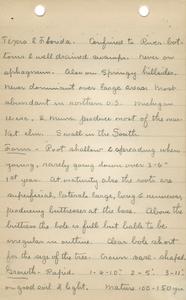 Texas & Florida. Confined to River bot-
toms & well drained swamps. Never on
sphagnum. Also on Springy hillsides.
Never dominant over large areas. Most
abundant in northern U.S. Michigan
Wisc., & Minn. produce most of the
elm. Small in the South.
Form - Root shallow & spreading when
young, rarely going down over 3-4"
1st year. At maturity also the roots are
superficial, lateral, large, long & numerous,
producing buttresses at the base. Above the
buttress the bole is full but liable to be
irregular in outline. Clear bole short
for the size of the tree. Crown vase-shaped.
Growth - Rapid. 1-8-10" 2-5' 3-11'
on good soil & light. Mature 100-150 yrs